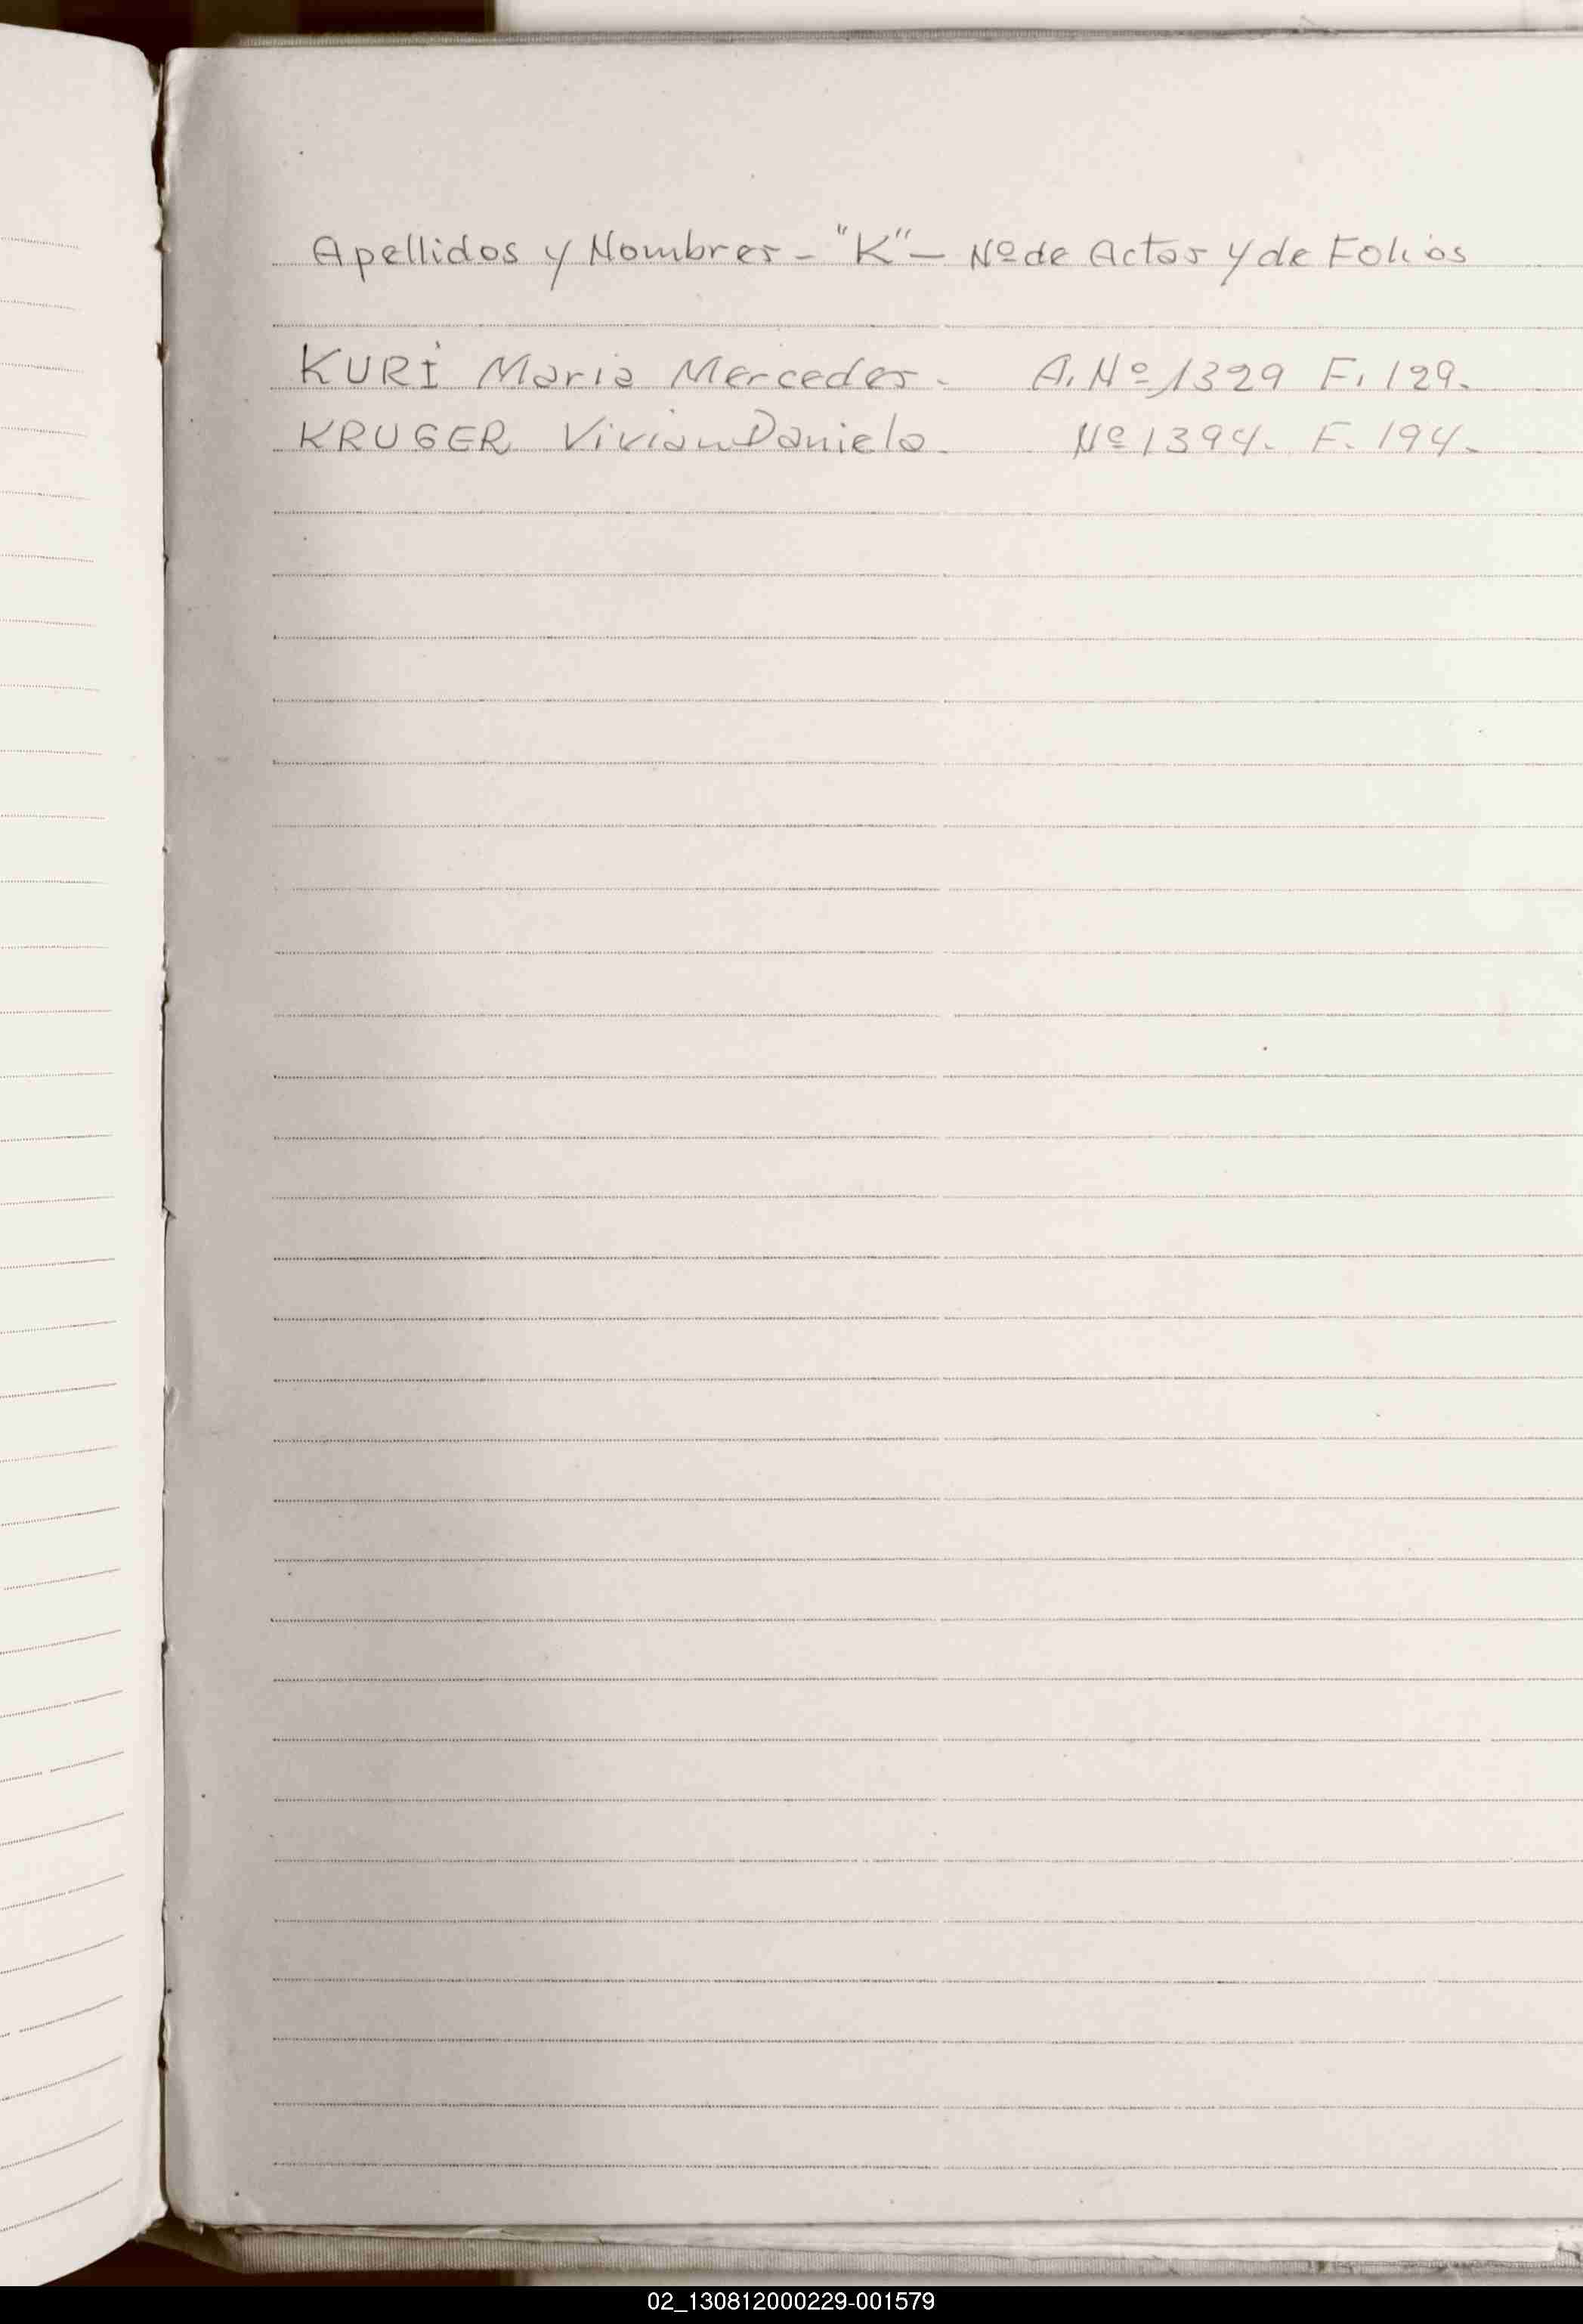 Apellidos y Nombres - "K" - Nº de Actas y de Folios
KURI Maria Mercedes. A. Nº 1329 F. 129.
KRUGER Vivian Daniela. Nº 1394. F. 194.
02_130812000229-001579